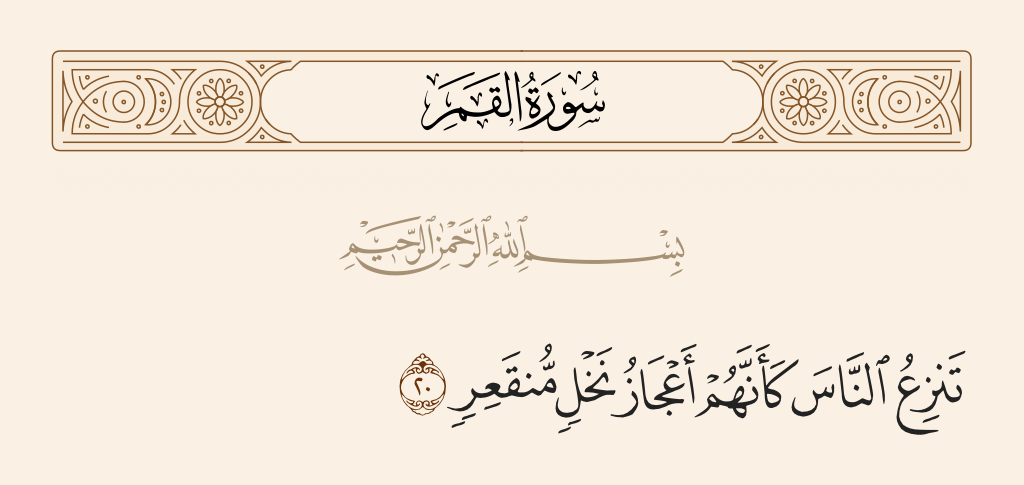 سُورَةُ القَمَرِ
بِسْمِ ٱللَّهِ ٱلرَّحْمَٰنِ ٱلرَّحِيمِ
تَنزِعُ ٱلنَّاسَ كَأَنَّهُمْ أَعْجَازُ نَخْلٍ مُّنقَعِرٍ ٢٠